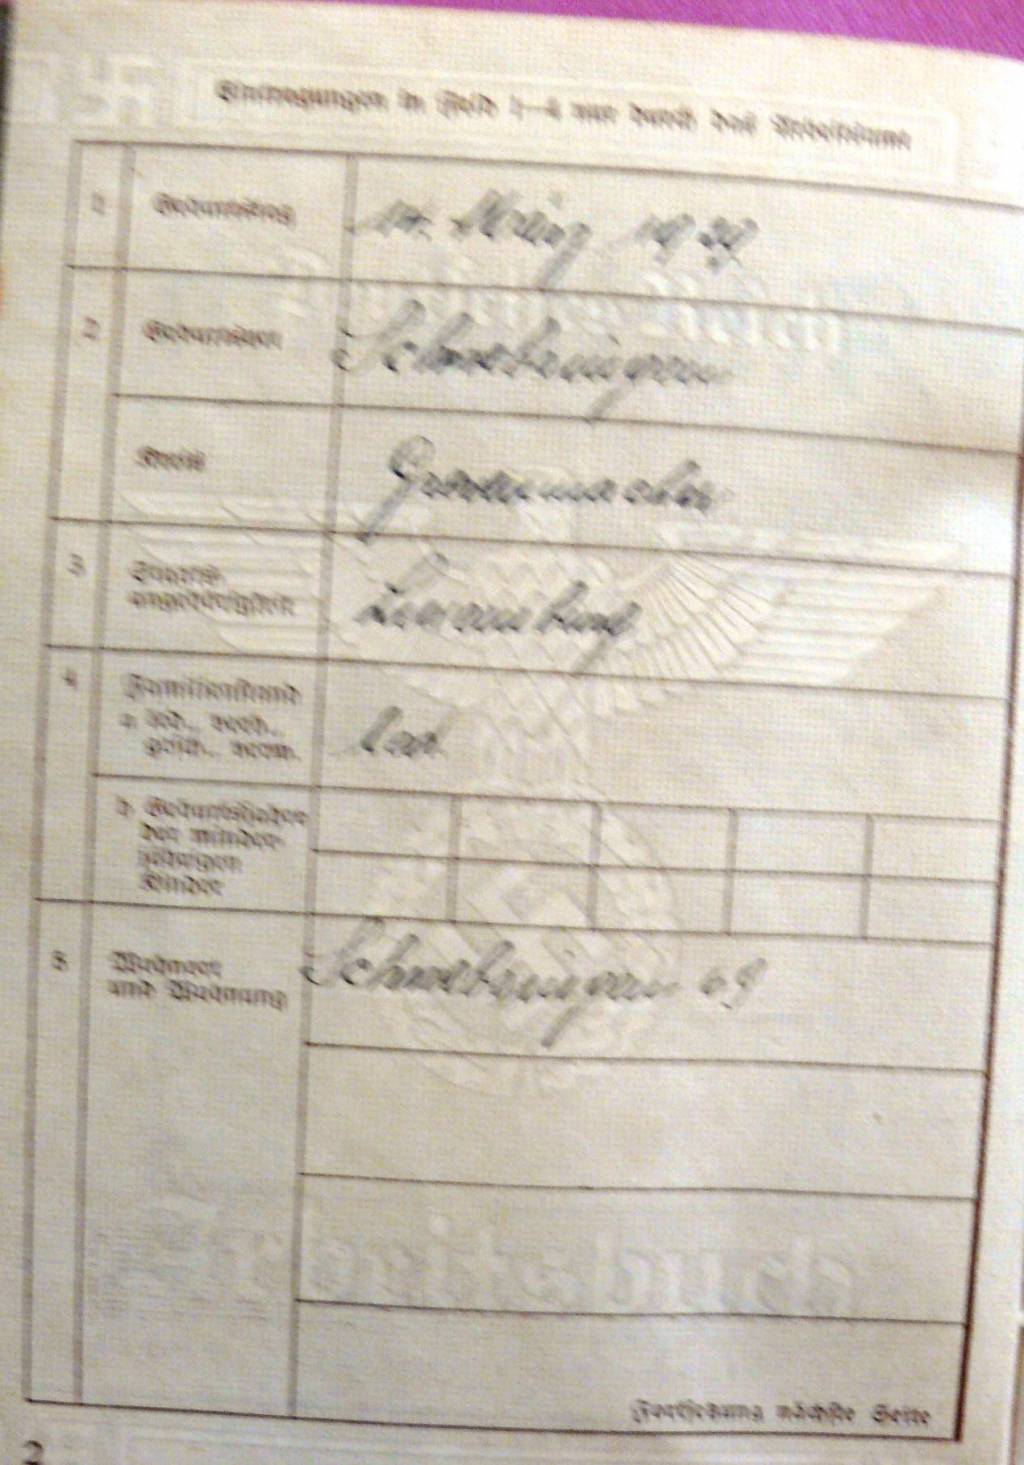 Eintragungen in Feld 1–4 nur durch das Arbeitsamt
1 Geburtstag
März 19
2 Geburtsort Schwebsingen
Kreis Grevenmacher
3 Staats-
angehörigkeit Luxemburg
4 Familienstand
a led., verh.,
gesch., verw.
b Geburtsjahre
der minder-
jährigen
Kinder
5 Wohnort Schwebsingen
und Wohnung
Arbeitsbuch
Fortsetzung nächste Seite
2